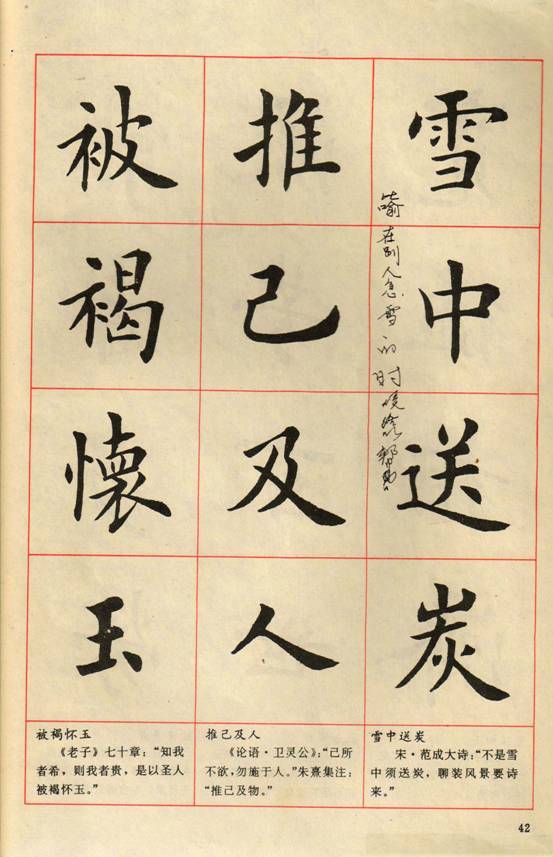 雪中送炭
推己及人
被褐懷玉
喻在别人急需的时候给以帮助
雪中送炭
宋·范成大诗：“不是雪
中须送炭，聊装风景要诗
来。”
推己及人
《论语·卫灵公》：“己所
不欲，勿施于人。”朱熹集注：
“推己及物。”
被褐怀玉
《老子》七十章：“知我
者希，则我者贵，是以圣人
被褐怀玉。”
42